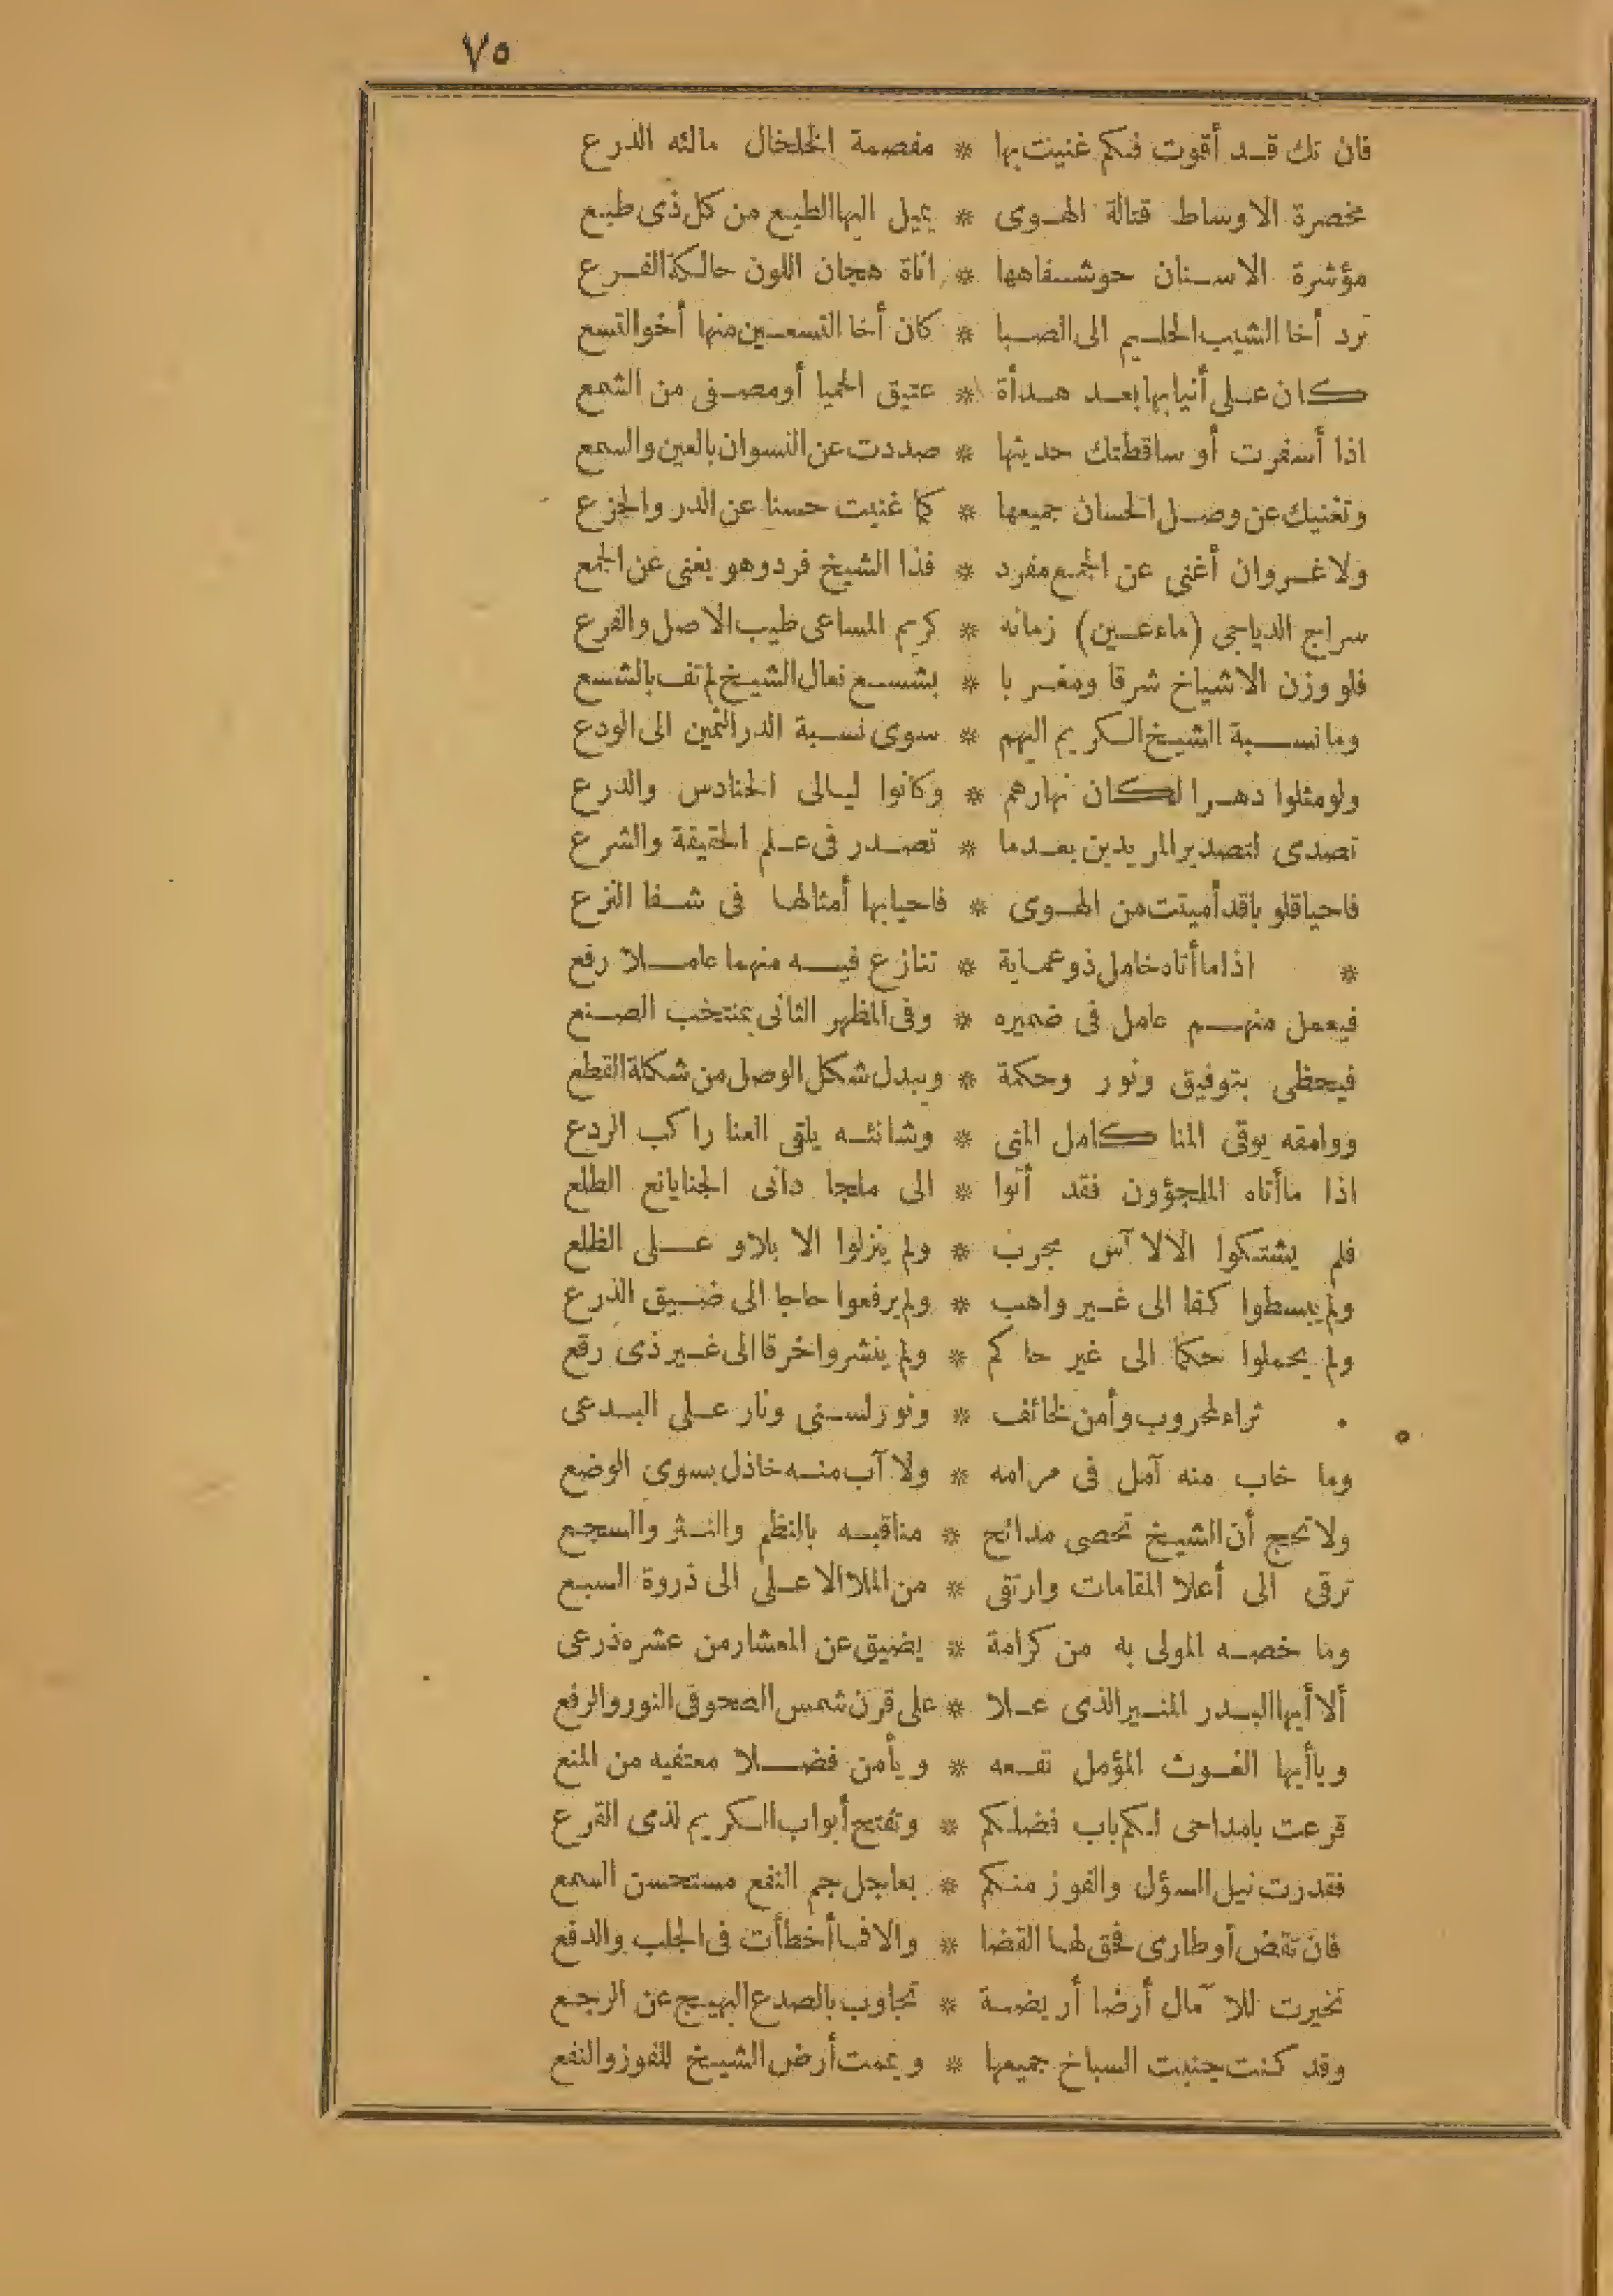 ٧٥
فان تك قد أقوت فكم غنيت بها * مفصمة الخلخال مالئه الدرع
مخصرة الاوساط قتالة الهوى * يميل اليها الطبع من كل ذى طبع
مؤشرة الاسنان حو شفاهها * اناة هجان اللون حالكة الفرع
ترد أخا الشيب الحليم الى الصبا * كان أخا التسعين منها أخو التسع
كان على أنيابها بعد هدأة * عتيق الحميا أو مصفى من الشمع
اذا أسفرت أو ساقطتك حديثها * صددت عن النسوان بالعين والسمع
وتغنيك عن وصل الحسان جميعها * كما غنيت حسنا عن الدر والجزع
ولا غرو ان أغنى عن الجمع مفرد * فذا الشيخ فرد وهو يغنى عن الجمع
سراج الدياجى (ماء عين) زمانه * كريم المساعى طيب الاصل والفرع
فلو وزن الاشياخ شرقا ومغربا * بشسع نعال الشيخ لم تف بالشسع
وما نسبة الشيخ الكريم اليهم * سوى نسبة الدر الثمين الى الودع
ولو مثلوا دهرا لكان نهارهم * وكانوا ليالى الحنادس والدرع
تصدى لتصدير المريدين بعدما * تصدر فى علم الحقيقة والشرع
فاحيا قلوبا قد أميتت من الهوى * فاحيا بها أمثالها فى شفا النزع
* اذا ما أتاه خامل ذو عماية * تنازع فيه منهما عاملا رفع
فيعمل منهم عامل فى ضميره * وفى المظهر الثانى بمنتخب الصنع
فيحظى بتوفيق ونور وحكمة * ويبدل شكل الوصل من شكلة القطع
ووامقه يوقى المنا كامل المنى * وشانئه يلقى العنا راكب الردع
اذا ما أتاه الملجؤون فقد أتوا * الى ملجا دانى الجنا يانع الطلع
فلم يشتكوا الا لآس مجرب * ولم ينزلوا الا بلاو على الظلع
ولم يبسطوا كفا الى غير واهب * ولم يرفعوا حاجا الى ضيق الذرع
ولم يحملوا حكما الى غير حاكم * ولم ينشروا خرقا الى غير ذى رقع
ثراء لمحروب وأمن لخائف * ونور لسنى ونار على البدعى
وما خاب منه آمل فى مرامه * ولا آب منه خاذل بسوى الوضع
ولا تحج أن الشيخ تحصى مدائح * مناقبه بالنظم والنثر والسجع
ترقى الى أعلا المقامات وارتقى * من الملا الاعلى الى ذروة السبع
وما خصه المولى به من كرامة * يضيق عن المعشار من عشره ذرعى
ألا أيها البدر المنير الذى علا * على قرن شمس الصحو فى النور والرفع
ويا أيها الغوث المؤمل نفعه * ويأمن فضلا معتفيه من المنع
قرعت بامداحى لكم باب فضلكم * وتفتح أبواب الكريم لذى القرع
فقدرت نيل السؤل والفوز منكم * بعاجل جم النفع مستحسن السمع
فان تقض أوطارى فحق لها القضا * والا فما أخطأت فى الجلب والدفع
تخيرت للآمال أرضا أريضة * تجاوب بالصدع البهيج عن الرجع
وقد كنت جنبت السباخ جميعها * ويممت أرض الشيخ للفوز والنفع